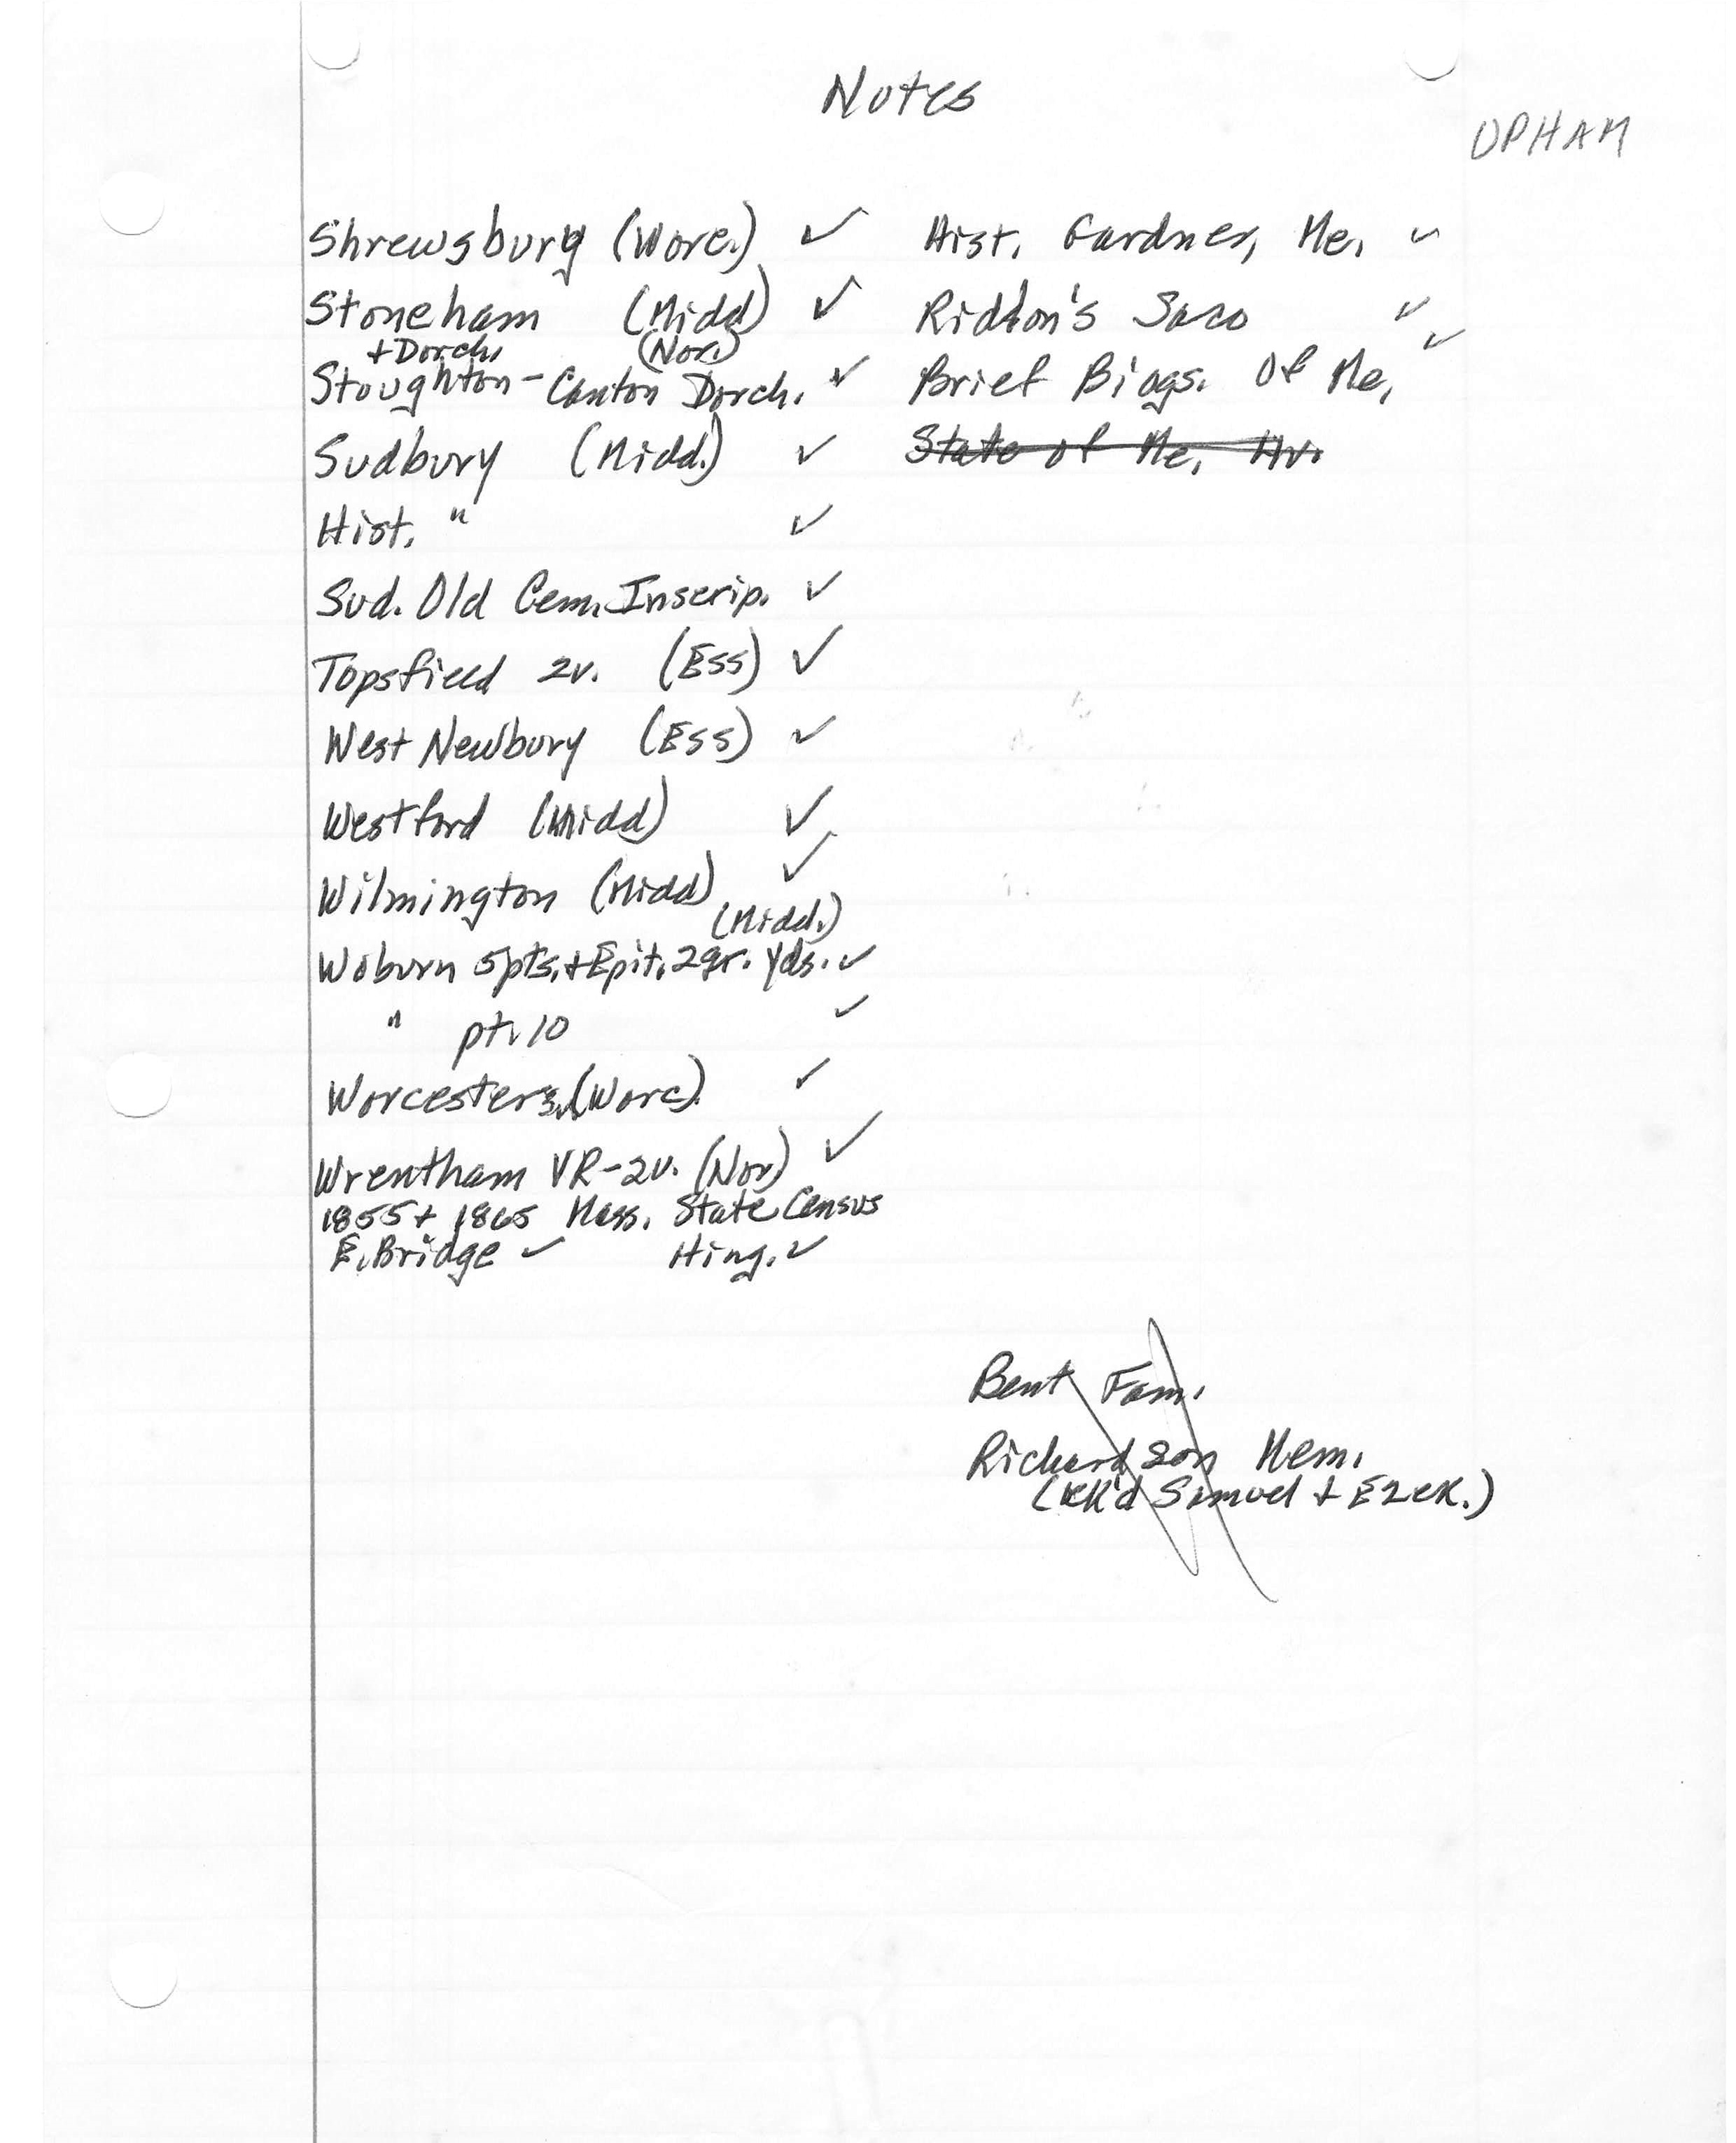 Notes
UPHAM
Shrewsbury (Worc.) ✓
Stoneham (Midd) ✓
+Dorch. (Nor.)
Stoughton-Canton Dorch. ✓
Sudbury (Midd.) ✓
Hist. " ✓
Sud. Old Cem. Inscrip. ✓
Topsfield 2v. (Ess) ✓
West Newbury (Ess) ✓
Westford (Midd) ✓
Wilmington (Midd) ✓
(Midd.)
Woburn 5pts.+Epit. 2gr. yds. ✓
" pt. 10 ✓
Worcester (Worc) ✓
Wrentham VR-2v. (Nor) ✓
1855+ 1865 Mass. State Census
E. Bridge ✓ Hing. ✓
Hist. Gardner, Me. ✓
Ridlon's Saco ✓
Brief Biogs. Of Me. ✓
State of Me.
Bent Fam.
Richardson Mem.
(ck'd Samuel + Ezek.)